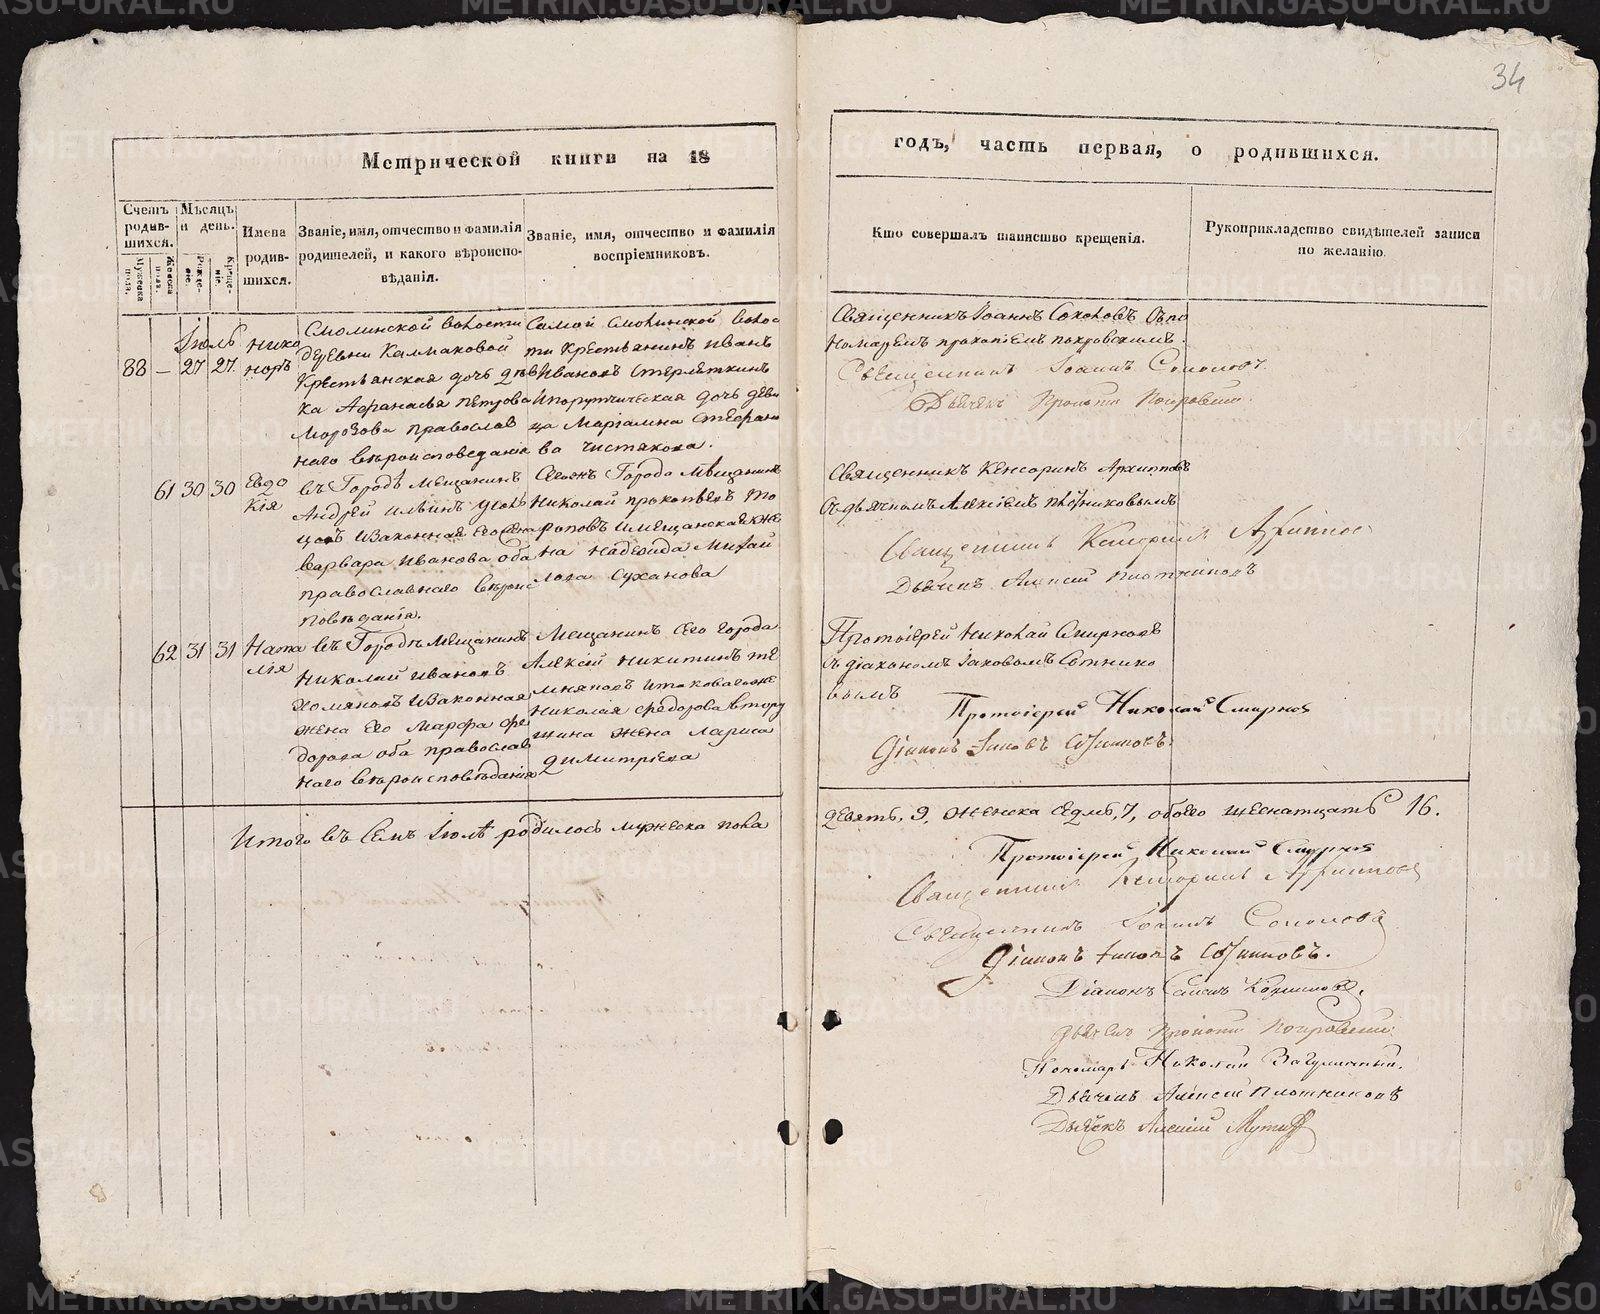 34
Метрической книги на 18
годъ, часть первая, о родившихся.
Счетъ родив-шихся.
Мужеска пола.
Женска пола.
Мѣсяцъ и день.
Рожде-ніе.
Креще-ніе.
Имена родив-шихся.
Званіе, имя, отчество и фамилія
родителей, и какого вѣроиспо-
вѣданія.
Званіе, имя, отчество и фамилія
воспріемниковъ.
Кто совершалъ таинство крещенія.
Рукоприкладство свидѣтелей записи
по желанію.
Іюль
88 — 27 27. Нико
норъ
Смолинской волости
деревни Калмаковой
Крестьянская дочь дѣв
ка Афанасья Петрова
Морозова православ
наго вѣроисповедания
Самой Смолинской волос
ти Крестьянинъ Иванъ
Ивановъ Стерляткинъ
дочь деви
ца Маріамна Стефано
ва Чистякова.
Священникъ Іоаннъ Соколовъ съ по
номаремъ прокопіемъ покровскимъ.
Священникъ Іоаннъ Соколовъ.
Дьячекъ Прокопій Покровскій.
61 30 30 Евдо
кія
въ Городѣ Мещанинъ
Андрей Ильинъ
цовъ Изаконная его жена
Варвара Иванова оба
православнаго вѣроис
повѣданія.
Сегоеъ Города Мѣщанинъ
Николай прокопьевъ То
роповъ Имещанская же
на Надежда Михай
лова Суханова
Священникъ Кенсоринъ Архиповъ
съ дьячкомъ Алексѣемъ плотниковымъ
Священникъ Кенсоринъ Архиповъ
Дьячекъ Алексѣй Плотниковъ
62 31 31 Ната
лія
въ Городѣ Мещанинъ
Николай Ивановъ
Хомяковъ Изаконная
жена его Марфа Фе
дорова оба православ
наго вѣроисповѣданія
Мещанинъ сего города
Алексѣй Никитинъ
Николая Федорова втору
шина жена Лариса
димитріева
Протоіерей Николай Смирновъ
съ діакономъ Іаковомъ Сотнико
вымъ
Протоіерей Николай Смирновъ
Діаконъ Іаковъ Сотниковъ.
Итого въ семъ Іюлѣ родилось мужеска пола
девять, 9, женска седмь, 7, обоего шеснатцать 16.
Протоіерей Николай Смирновъ
Священникъ Кенсоринъ Архиповъ
Священникъ Іоаннъ Соколовъ
Діаконъ Іаковъ Сотниковъ.
Діаконъ
Дьячекъ Прокопій Покровскій.
Пономарь Николай
Дьячекъ Алексѣй Плотниковъ
Дьячекъ Алексій
METRIKI.GASO-URAL.RU